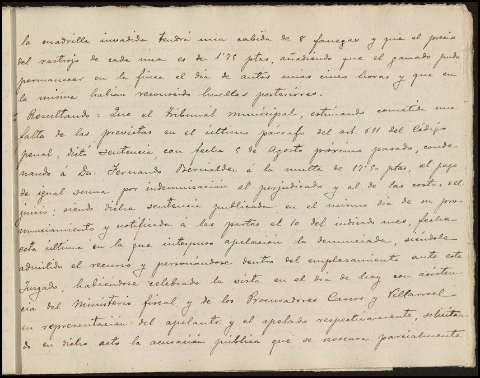 la madrilla invadida tendrá una cabida de 8 fanegas y que el precio
del rastrojo de cada una es de 1'75 ptas, añadiendo que el ganado pudo
permanecer en la finca el dia de autos unas cinco horas y que en
la misma habian reconocido huellas posteriores.
Resultando: Que el Tribunal municipal, estimando cometida una
falta de las previstas en el último párrafo del art. 611 del Código
penal, dictó sentencia con fecha 5 de Agosto próximo pasado, conde-
nando á Dn. Fernando á la multa de 17'50 ptas, al pago
de igual suma por indemnización al perjudicado y al de las costas del
juicio; siendo dicha sentencia publicada en el mismo dia de su pro-
nunciamiento y notificada á las partes el 10 del indicado mes, fecha
esta última en la que interpuso apelación la denunciada, siéndole
admitido el recurso y personándose dentro del emplazamiento ante este
Juzgado, habiéndose celebrado la vista en el dia de hoy con asisten-
cia del Ministerio fiscal y de los Procuradores y Villarroel
en representación del apelante y el apelado respectivamente, solicitan-
do en dicho acto la acusación pública que se revocara parcialmente